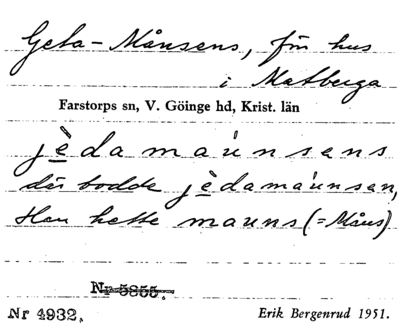 Geta-Månsens, för hus
i Matberga
Farstorps sn, V. Göinge hd, Krist. län
jèdamáunsens
där bodde jèdamáunsen,
Han hette mauns (= Måns)
Nr 5855.
Nr 4932.
Erik Bergenrud 1951.